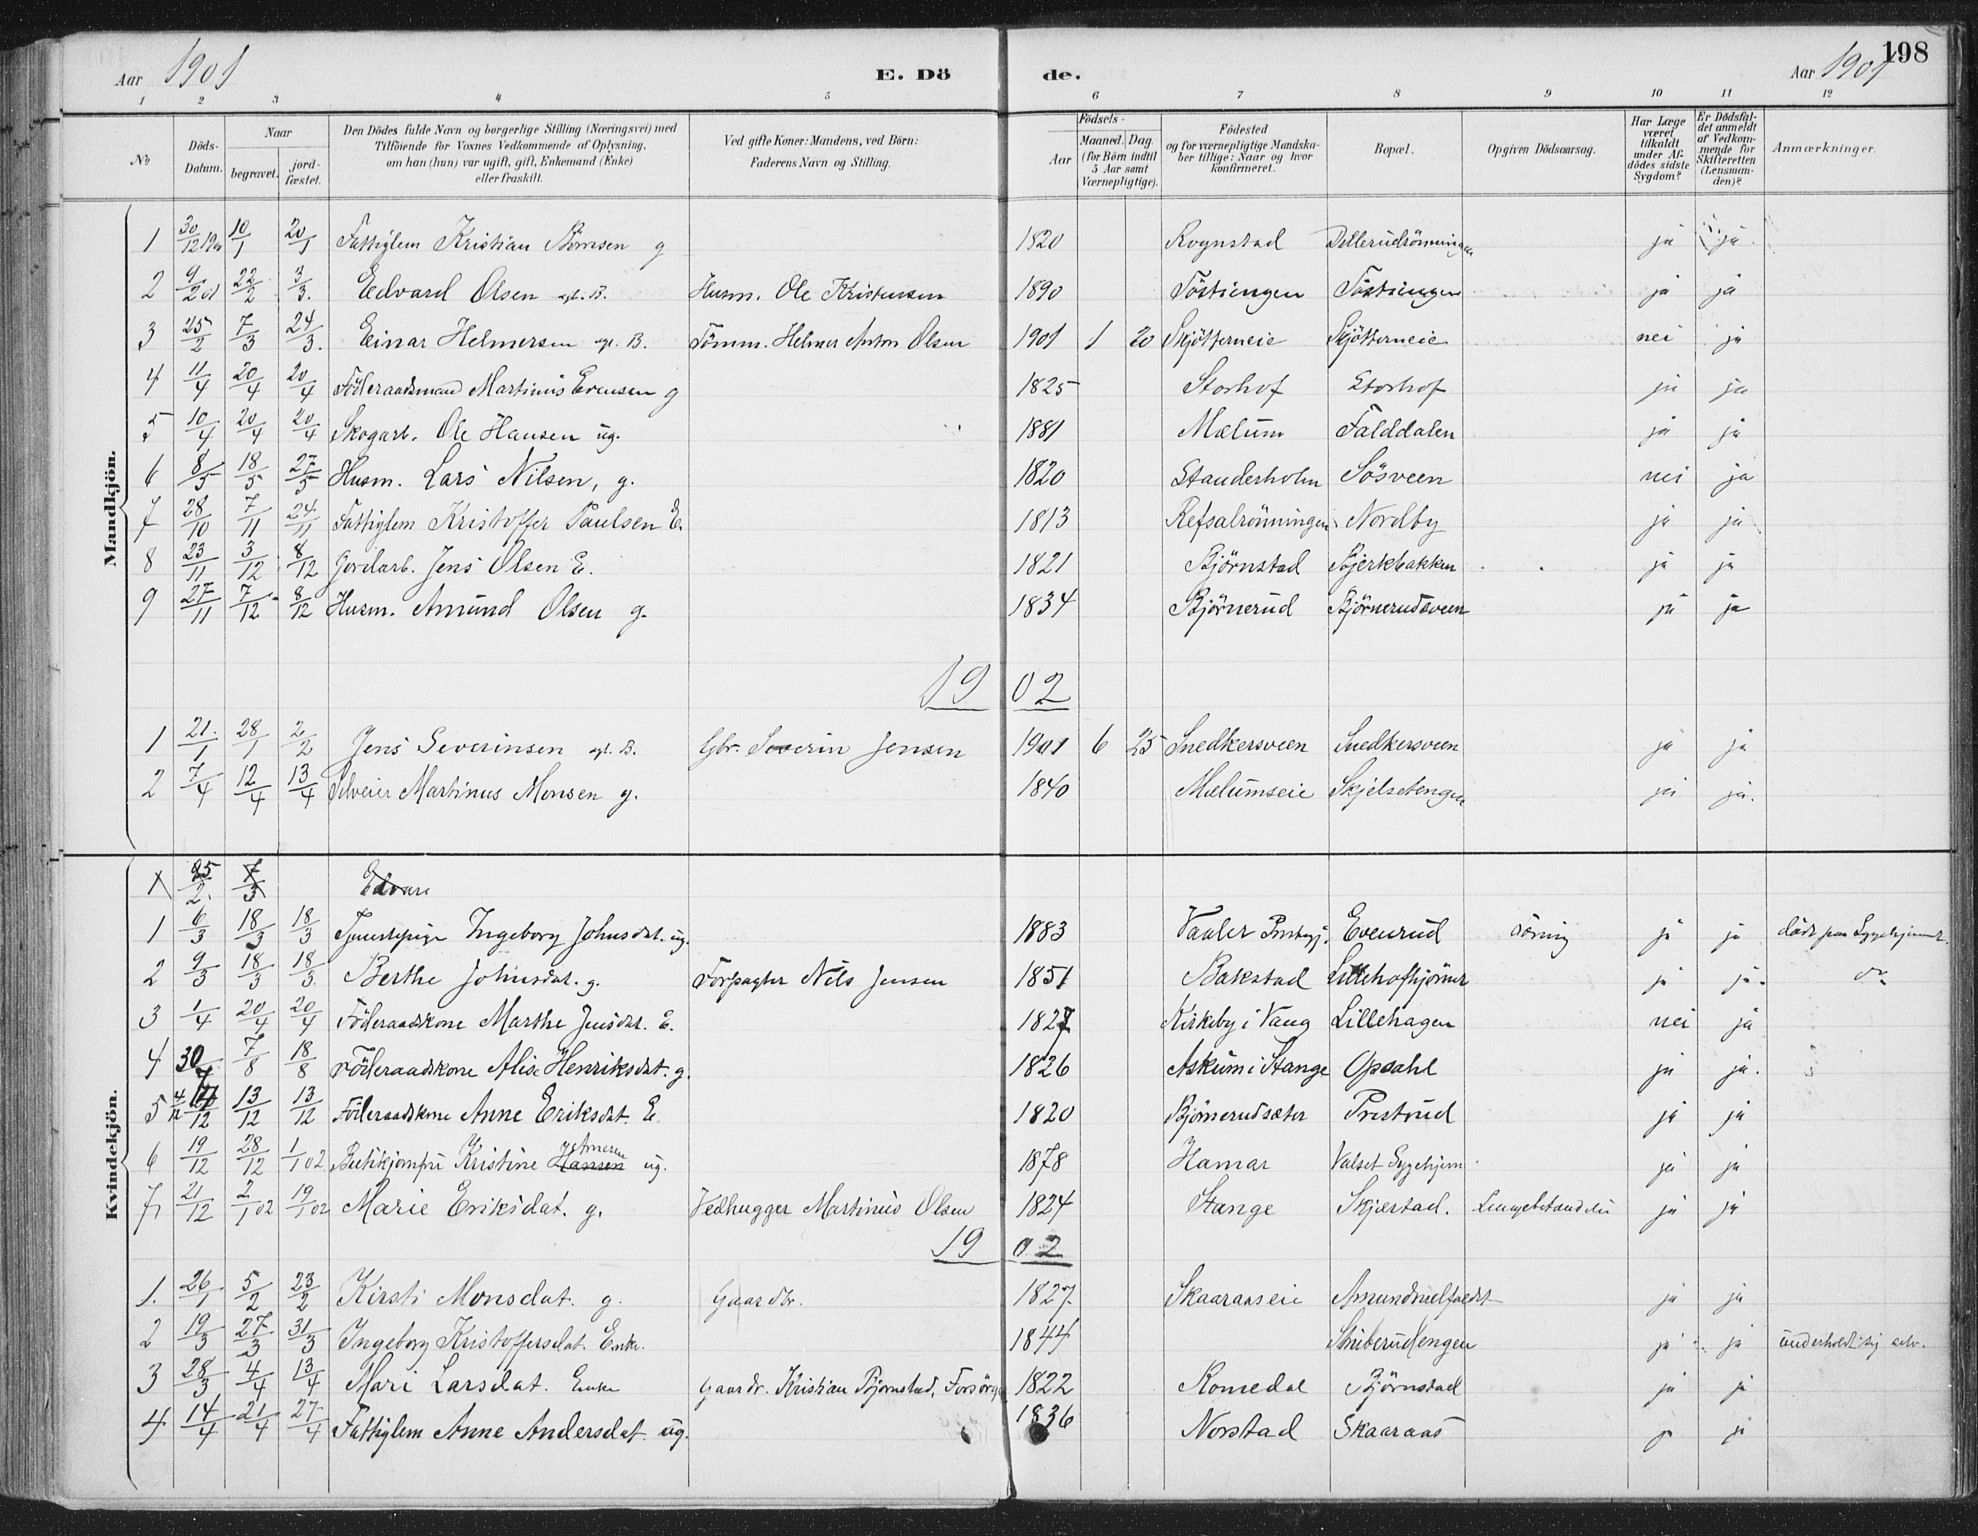 Aar 1901 E. Dö de. Aar 1901 198
1 2 3 4 5 6 7 8 9 10 11 12
No
Döds-Datum.
Naar
begravet.
jord-fæstet.
Den Dödes fulde Navn og borgerlige Stilling (Næringsvei) med
Tilföiende for Voxnes Vedkommende af Oplysning,
om han (hun) var ugift, gift, Enkemand (Enke)
eller fraskilt.
Ved gifte Koner: Mandens, ved Börn:
Faderens Navn og Stilling.
Födsels-
Aar
Maaned. Dag.
(for Börn indtil
5 Aar samt
Værnepligtige).
Födested
og for værnepligtige Mandska-
ber tillige: Naar og hvor
konfirmeret.
Bopæl.
Opgiven Dödsaarsag.
Har Læge
været
tilkaldt
under Af-
dödes sidste
Sygdom?
Er Dödsfal-
det anmeldt
af Vedkom-
mende for
Skifteretten
(Lensman-
den)?
Anmærkninger.
Mandkjön.
1 30/12 10/1 20/1 Fattiglem Kristian g 1820 Rognstad ja ja
2 9/2 01 22/2 3/3. Edvard Olsen Husm. Ole Kristensen 1890 Töstiengen Töstiengen ja ja
3 25/2 7/3 24/3. Einar Helmersen Tömm. Helmer Anton Olsen 1901 1 20 Skjötterneie Skjötterneie nei ja
4 11/4 20/4 20/4 Föderaadsmand Martinus Evensen g 1825 Storhof Storhof ja ja
5 10/4 20/4 20/4 Skogarb. Ole Hansen ug. 1881 Mælum Falddalen ja ja
6 8/5 18/5 27/5 Husm. Lars Nilsen, g. 1820 Standerholm Sösveen nei ja
7 28/10 7/11 24/11 Fattiglem Kristoffer Paulsen E. 1813 Refsalrönningen Nordby ja ja
8 23/11 3/12 8/12 Jordarb. Jens Olsen E. 1821 Björnstad Bjerkbakken ja ja
9 27/11 7/12 8/12 Husm. Amund Olsen g. 1834 Björnerud Björnerudsveen ja ja
19 02
1 21/1 28/1 2/2 Jens Severinsen Gbr. Severin Jensen 1901 6 25 Snedkersveen Snedkersveen ja ja
2 7/4 12/4 13/4 Martinus Monsen g. 1840 Mælumseie Skjelsetengen ja ja.
Kvindekjön.
1 25/2 7/3 Edvar
1 6/3 18/3 18/3 Tjenestepige Ingeborg Johnsdat. ug. 1883 Vaaler Evenrud ja ja
2 9/3 18/3 18/3 Berthe Johnsdat. g. Forpagter Nils Jensen 1851 Bakstad Lillehofhjörner ja ja.
3 1/4 20/4 20/4 Föderaadskone Marthe Jensdat. E. 1827 Kirkeby i Vang Lillehagen nei ja
4 30/7 7/8 18/8 Föderaadskone Alis Henriksdat. g. 1826 Askum i Stange Opsahl ja ja.
5 13/12 13/12 Föderaadskone Anne Eriksdat. E. 1820 Björnerudsæter Prestrud ja ja
6 19/12 28/12 1/1 02 Kristine Hansen ug. 1878 Hamar Valset Sygehjem ja ja
7 21/12 2/1 02 19/1 02 Marie Eriksdat. g. Vedhugger Martinus Olsen 1824 Stange Skjerstad. Lungebetændelse ja ja
19 02
1. 26/1 5/2 23/2 Kirsti Monsdat. g. Gaardbr. 1827. Skaaraaseie ja ja
2 19/3 27/3 31/3 Ingeborg Kristoffersdat. Enke. 1844 Stuberudengen ja ja underholdt sig selv.
3 28/3 4/4 13/4 Mari Larsdat. Enke Gaardbr. Kristian Björnstad, 1822 Romedal Björnstad ja ja
4 14/4 21/4 27/4 Fattiglem Anne Andersdat ug. 1836 Norstad Skaaraas ja ja